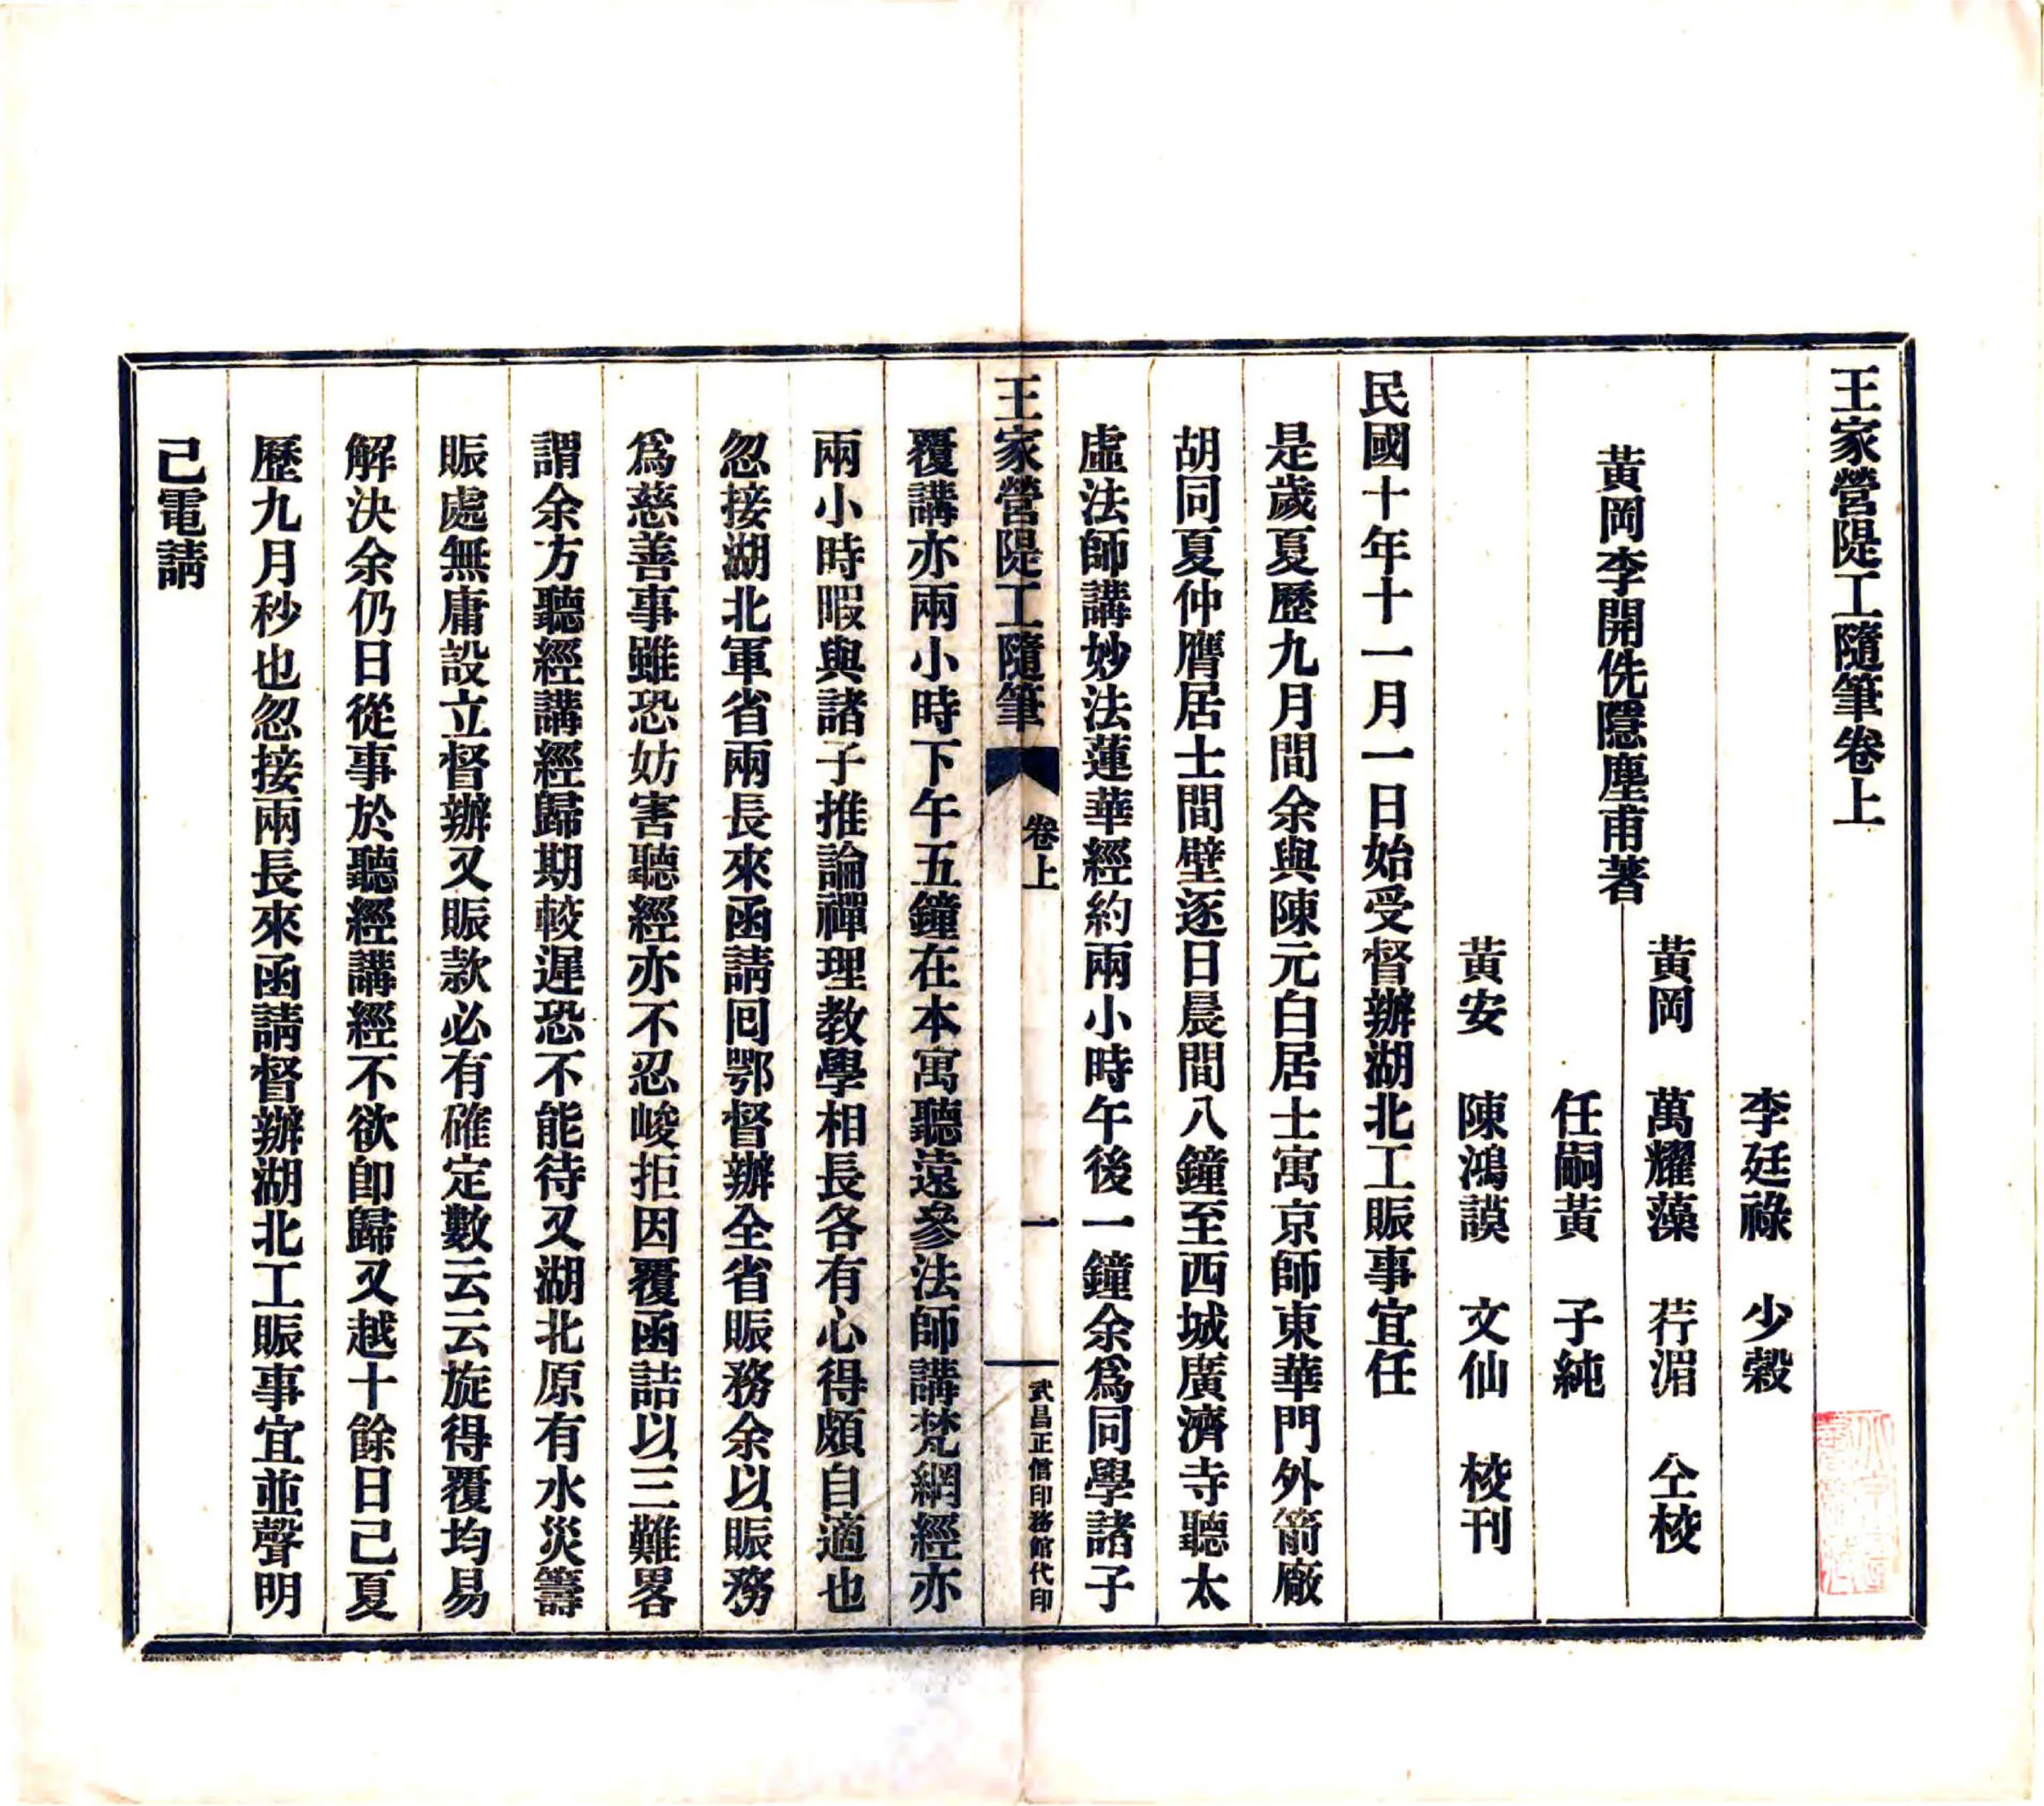 王家營隄工隨筆卷上
李廷祿　少穀
黃岡　萬耀藻　荇湄　仝校
黃岡李開侁隱塵甫著
任嗣黃　子純
黃安　陳鴻謨　文仙　校刊
民國十年十一月一日始受督辦湖北工賑事宜任
是歲夏歷九月間余與陳元白居士寓京師東華門外箭廠
胡同夏仲膺居士間壁逐日晨間八鐘至西城廣濟寺聽太
虛法師講妙法蓮華經約兩小時午後一鐘余爲同學諸子
王家營隄工隨筆　卷上　一　武昌正信印務館代印
覆講亦兩小時下午五鐘在本寓聽遠參法師講梵網經亦
兩小時暇與諸子推論禪理教學相長各有心得頗自適也
忽接湖北軍省兩長來函請囘鄂督辦全省賑務余以賑務
爲慈善事雖恐妨害聽經亦不忍峻拒因覆函詰以三難畧
謂余方聽經講經歸期較遲恐不能待又湖北原有水災籌
賑處無庸設立督辦又賑款必有確定數云云旋得覆均易
解決余仍日從事於聽經講經不欲卽歸又越十餘日己夏
歷九月秒也忽接兩長來函請督辦湖北工賑事宜並聲明
己電請